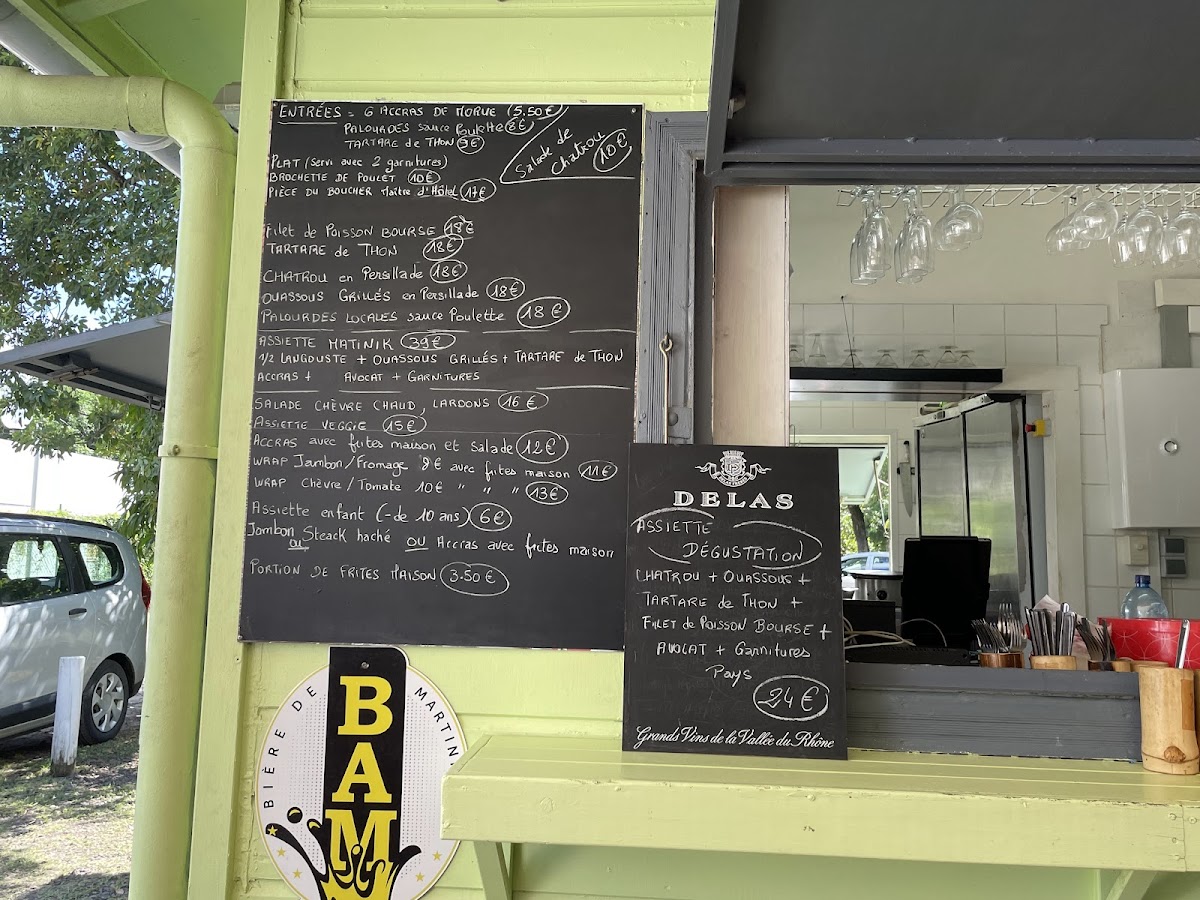 ENTRÉES = 6 ACCRAS DE MORUE (5.50€)
PALOURDES sauce Poulette 8€
TARTARE de THON 9€
Salade de
chatrou 10€
PLAT (servi avec 2 garnitures)
BROCHETTE DE POULET 10€
PIÈCE DU BOUCHER Maître d'Hôtel 17€
Filet de POISSON BOURSE 18€
TARTARE de THON 18€
CHATROU en Persillade 18€
OUASSOUS GRILLÉS en Persillade 18€
PALOURDES LOCALES sauce Poulette 18€
ASSIETTE MATINIK 39€
1/2 LANGOUSTE + OUASSOUS GRILLÉS + TARTARE de THON
ACCRAS + AVOCAT + GARNITURES
SALADE CHÈVRE CHAUD, LARDONS 16€
ASSIETTE VEGGIE 15€
ACCRAS avec frites maison et salade 12€
WRAP Jambon/Fromage 9€ avec frites maison 11€
WRAP Chèvre/Tomate 10€ " " " 13€
Assiette enfant (-de 10 ans) 6€
Jambon ou Steack haché ou Accras avec frites maison
PORTION DE FRITES MAISON 3.50€
DELAS
ASSIETTE
DÉGUSTATION
CHATROU + OUASSOUS +
TARTARE de THON +
FILET de POISSON BOURSE +
AVOCAT + Garnitures
Pays
24€
Grands Vins de la Vallée du Rhône
BIÈRE DE MARTIN
BAM